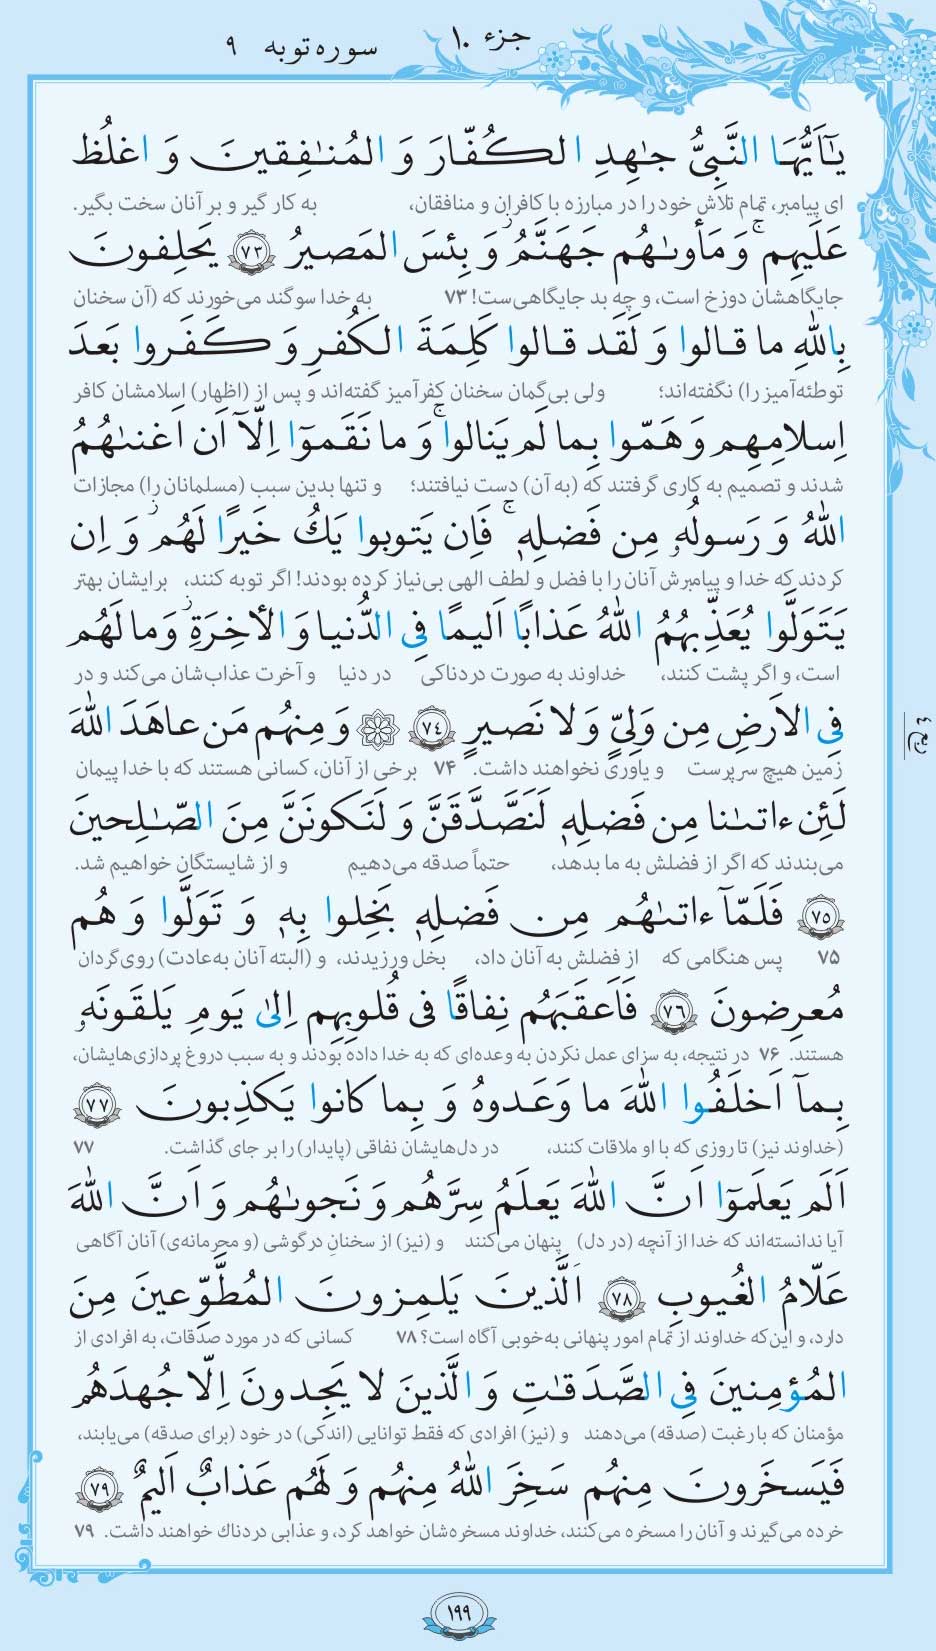 جزء ۱۰
سوره توبه ۹
يٰٓاَيُّهَا النَّبِىُّ جٰهِدِ الكُفّارَ وَ المُنٰفِقينَ وَ اغلُظ
ای پیامبر، تمام تلاش خود را در مبارزه با کافران و منافقان، به کار گیر و بر آنان سخت بگیر.
عَلَيهِم ۚ وَ مَأوىٰهُم جَهَنَّمُ ۖ وَ بِئسَ المَصيرُ ﴿٧٣﴾ يَحلِفونَ
جایگاهشان دوزخ است، و چه بد جایگاهی‌ست! ۷۳ به خدا سوگند می‌خورند که (آن سخنان
بِاللّٰهِ ما قالوا وَ لَقَد قالوا كَلِمَةَ الكُفرِ وَ كَفَروا بَعدَ
توطئه‌آمیز را) نگفته‌اند؛ ولی بی‌گمان سخنان کفرآمیز گفته‌اند و پس از (اظهار) اسلامشان کافر
اِسلامِهِم وَ هَمّوا بِما لَم يَنالوا ۚ وَ ما نَقَموٓا اِلّآ اَن اَغنىٰهُمُ
شدند و تصمیم به کاری گرفتند که (به آن) دست نیافتند؛ و تنها بدین سبب (مسلمانان را) مجازات
اللّٰهُ وَ رَسولُهٗ مِن فَضلِهٖ ۚ فَاِن يَتوبوا يَكُ خَيرًا لَهُم ۖ وَ اِن
کردند که خدا و پیامبرش آنان را با فضل و لطف الهی بی‌نیاز کرده بودند! اگر توبه کنند، برایشان بهتر
يَتَوَلَّوا يُعَذِّبهُمُ اللّٰهُ عَذابًا اَليمًا فِى الدُّنيا وَ الاٰخِرَةِ ۖ وَ ما لَهُم
است، و اگر پشت کنند، خداوند به صورت دردناکی در دنیا و آخرت عذاب‌شان می‌کند و در
فِى الاَرضِ مِن وَلِىٍّ وَ لا نَصيرٍ ﴿٧٤﴾ وَ مِنهُم مَن عاهَدَ اللّٰهَ
زمین هیچ سرپرست و یاوری نخواهند داشت. ۷۴ برخی از آنان، کسانی هستند که با خدا پیمان
لَئِن ءاتىٰنا مِن فَضلِهٖ لَنَصَّدَّقَنَّ وَ لَنَكونَنَّ مِنَ الصّٰلِحينَ
می‌بندند که اگر از فضلش به ما بدهد، حتماً صدقه می‌دهیم و از شایستگان خواهیم شد.
﴿٧٥﴾ فَلَمّآ ءاتىٰهُم مِن فَضلِهٖ بَخِلوا بِهٖ وَ تَوَلَّوا وَ هُم
۷۵ پس هنگامی که از فضلش به آنان داد، بخل ورزیدند، و (البته آنان به‌عادت) روی‌گردان
مُعرِضونَ ﴿٧٦﴾ فَاَعقَبَهُم نِفاقًا فى قُلوبِهِم اِلىٰ يَومِ يَلقَونَهٗ
هستند. ۷۶ در نتیجه، به سزای عمل نکردن به وعده‌ای که به خدا داده بودند و به سبب دروغ پردازی‌هایشان،
بِمآ اَخلَفُوا اللّٰهَ ما وَعَدوهُ وَ بِما كانوا يَكذِبونَ ﴿٧٧﴾
(خداوند نیز) تا روزی که با او ملاقات کنند، در دل‌هایشان نفاقی (پایدار) را بر جای گذاشت. ۷۷
اَلَم يَعلَموٓا اَنَّ اللّٰهَ يَعلَمُ سِرَّهُم وَ نَجوىٰهُم وَ اَنَّ اللّٰهَ
آیا ندانسته‌اند که خدا از آنچه (در دل) پنهان می‌کنند و (نیز) از سخنان درگوشی (و محرمانه‌ی) آنان آگاهی
عَلّامُ الغُيوبِ ﴿٧٨﴾ اَلَّذينَ يَلمِزونَ المُطَّوِّعينَ مِنَ
دارد، و این‌که خداوند از تمام امور پنهانی به‌خوبی آگاه است؟ ۷۸ کسانی که در مورد صدقات، به افرادی از
المُؤمِنينَ فِى الصَّدَقٰتِ وَ الَّذينَ لا يَجِدونَ اِلّا جُهدَهُم
مؤمنان که با رغبت (صدقه) می‌دهند و (نیز) افرادی که فقط توانایی (اندکی) در خود (برای صدقه) می‌یابند،
فَيَسخَرونَ مِنهُم سَخِرَ اللّٰهُ مِنهُم وَ لَهُم عَذابٌ اَليمٌ ﴿٧٩﴾
خرده می‌گیرند و آنان را مسخره می‌کنند، خداوند مسخره‌شان خواهد کرد، و عذابی دردناک خواهند داشت. ۷۹
ربع ٤
۱۹۹